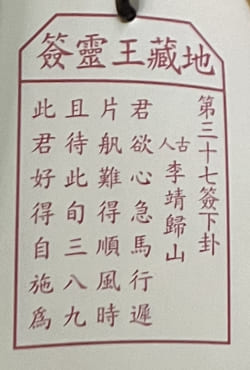 地藏王靈簽
第三十七簽下卦
古人 李靖歸山
君欲心急馬行遲
片帆難得順風時
且待此旬三八九
此君好得自施為